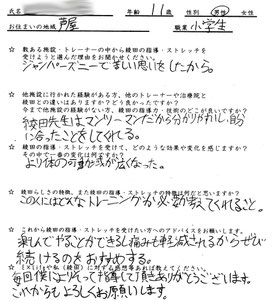 氏名 年齢 11歳 性別 男性 女性
お住まいの地域 芦屋 職業 小学生
☆ 数ある施設・トレーナーの中から綾田の指導・ストレッチを
受けようと選んだ理由をお聞かせください。
ジャンパーズニーでまましい思いをしたから。
☆ 他施設に行かれた経験がある方、他のトレーナーや治療院と
綾田との違いはありますか?どう良かったですか?
今まで他施設の経験がない方、綾田の指導力・技術のどこが良いですか?
綾田先生はマンツーマンだから分かりやすいし自分
に合ったことをしてくれる。
☆ 綾田の指導・ストレッチを受けて、どのような効果や変化を感じますか?
その中で一番の変化は何ですか?
より体の可動域が広くなった。
☆ 綾田らしさの特徴、また綾田の指導・ストレッチの特徴は何だと思いますか?
このくにはどんなトレーニングが必要か教えてくれること。
☆ これから綾田の指導・ストレッチを受けたい方へのアドバイスをお願いします。
楽しんでやることができるし痛みも軽減されるからぜひ
続けるのをおすすめする。
☆ 私(綾田)に対する感想等あれば教えてください。
毎回僕によりそって指導して頂きありがとうございます。
これからもよろしくお願いします。